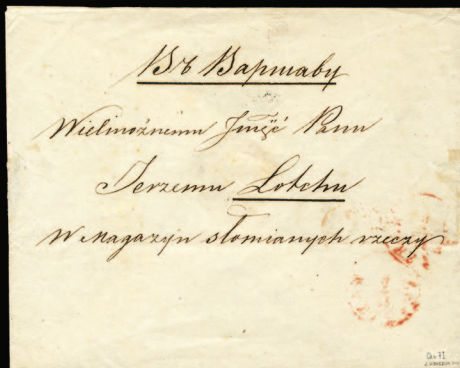 Въ Варшаву
Wielmożnemu Jmść Panu
Jerzemu Lotchu
w Magazyn słomianych rzeczy